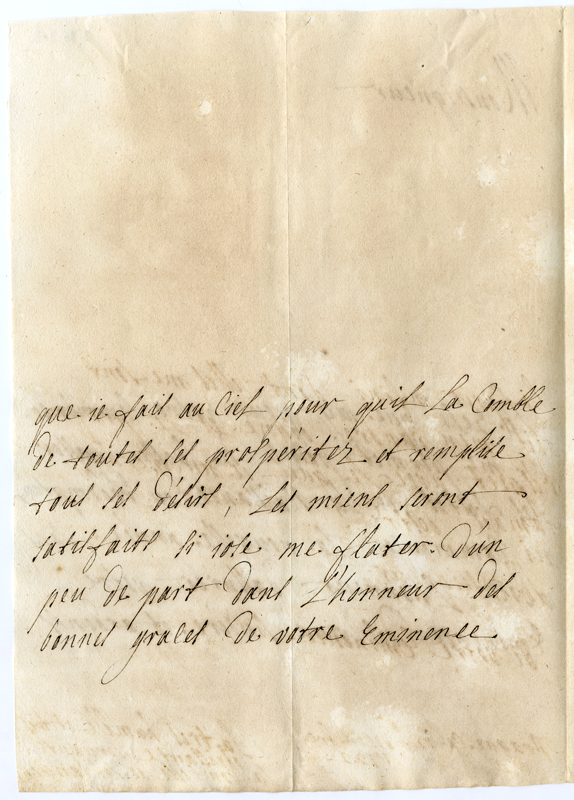 que ie fais au Ciel pour quil La Comble
de toutes ses prosperitez et remplise
tous ses désirs, Les miens seront
satisfaits si iose me flater. D'un
peu de part dans L'honneur des
bonnes graces de votre Eminence